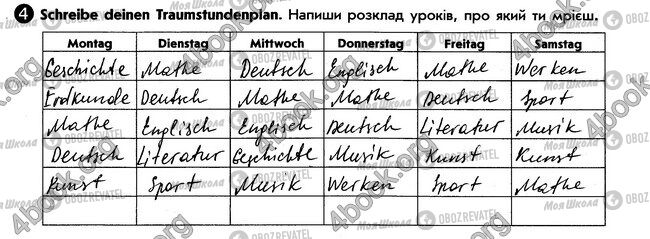 4 Schreibe deinen Traumstundenplan. Напиши розклад уроків, про який ти мрієш.
Montag Dienstag Mittwoch Donnerstag Freitag Samstag
Geschichte Mathe Deutsch Englisch Mathe Werken
Erdkunde Deutsch Mathe Mathe Deutsch Sport
Mathe Englisch Englisch Deutsch Literatur Musik
Deutsch Literatur Geschichte Musik Kunst Kunst
Kunst Sport Musik Werken Sport Mathe